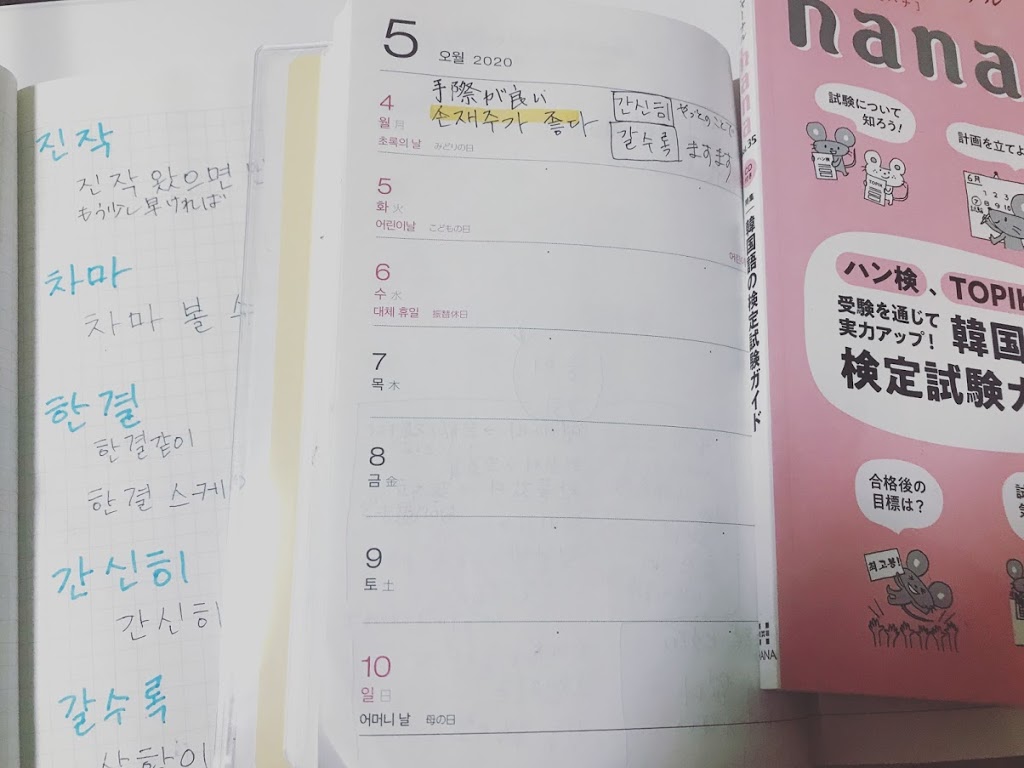 진작
진작 왔으면
もう少し早ければ
차마
차마 볼
한결
한결같이
한결 스케
간신히
간신히
갈수록
상황이
5 오월 2020
4
월 月
초록의 날 みどりの日
手際が良い
손재주가 좋다
간신히 やっとのことで
갈수록 ますます
5
화 火
어린이날 こどもの日
6
수 水
대체 휴일 振替休日
7
목 木
8
금 金
9
토 土
10
일 日
어머니 날 母の日
韓国語の検定試験ガイド
hana
試験について
知ろう!
ハン検
TOPIK
計画を立てよ
6月
ハン検、TOPIK
受験を通じて
実力アップ!
韓国
検定試験ガ
合格後の
目標は?
최고봉!
HANA